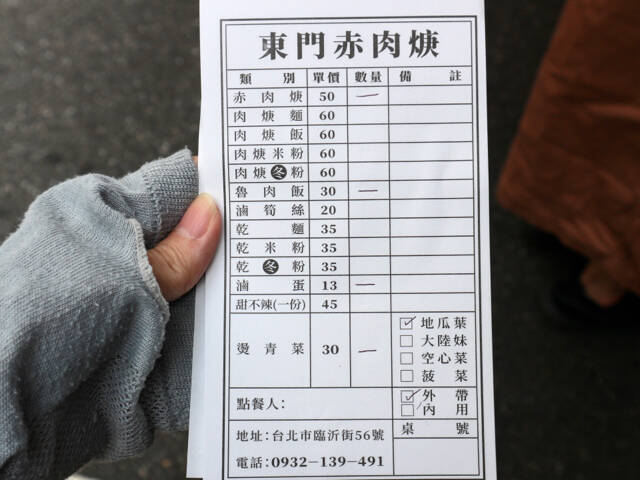 東門赤肉焿
類別 單價 數量 備註
赤肉焿 50 一
肉焿麵 60
肉焿飯 60
肉焿米粉 60
肉焿冬粉 60
魯肉飯 30 一
滷筍絲 20
乾麵 35
乾米粉 35
乾冬粉 35
滷蛋 13 一
甜不辣(一份) 45
燙青菜 30 一
地瓜葉
大陸妹
空心菜
菠菜
點餐人：
外帶
內用
桌號
地址：台北市臨沂街56號
電話：0932-139-491